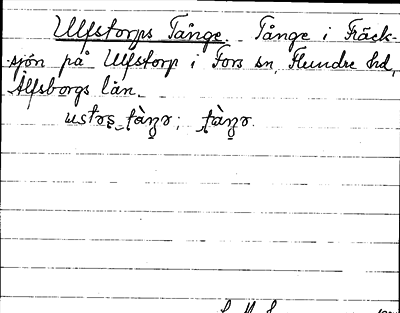 Ulfstorps Tånge. Tånge i Fräck-
sjön på Ulfstorp i Fors sn, Flundre hd,
Älfsborgs län.